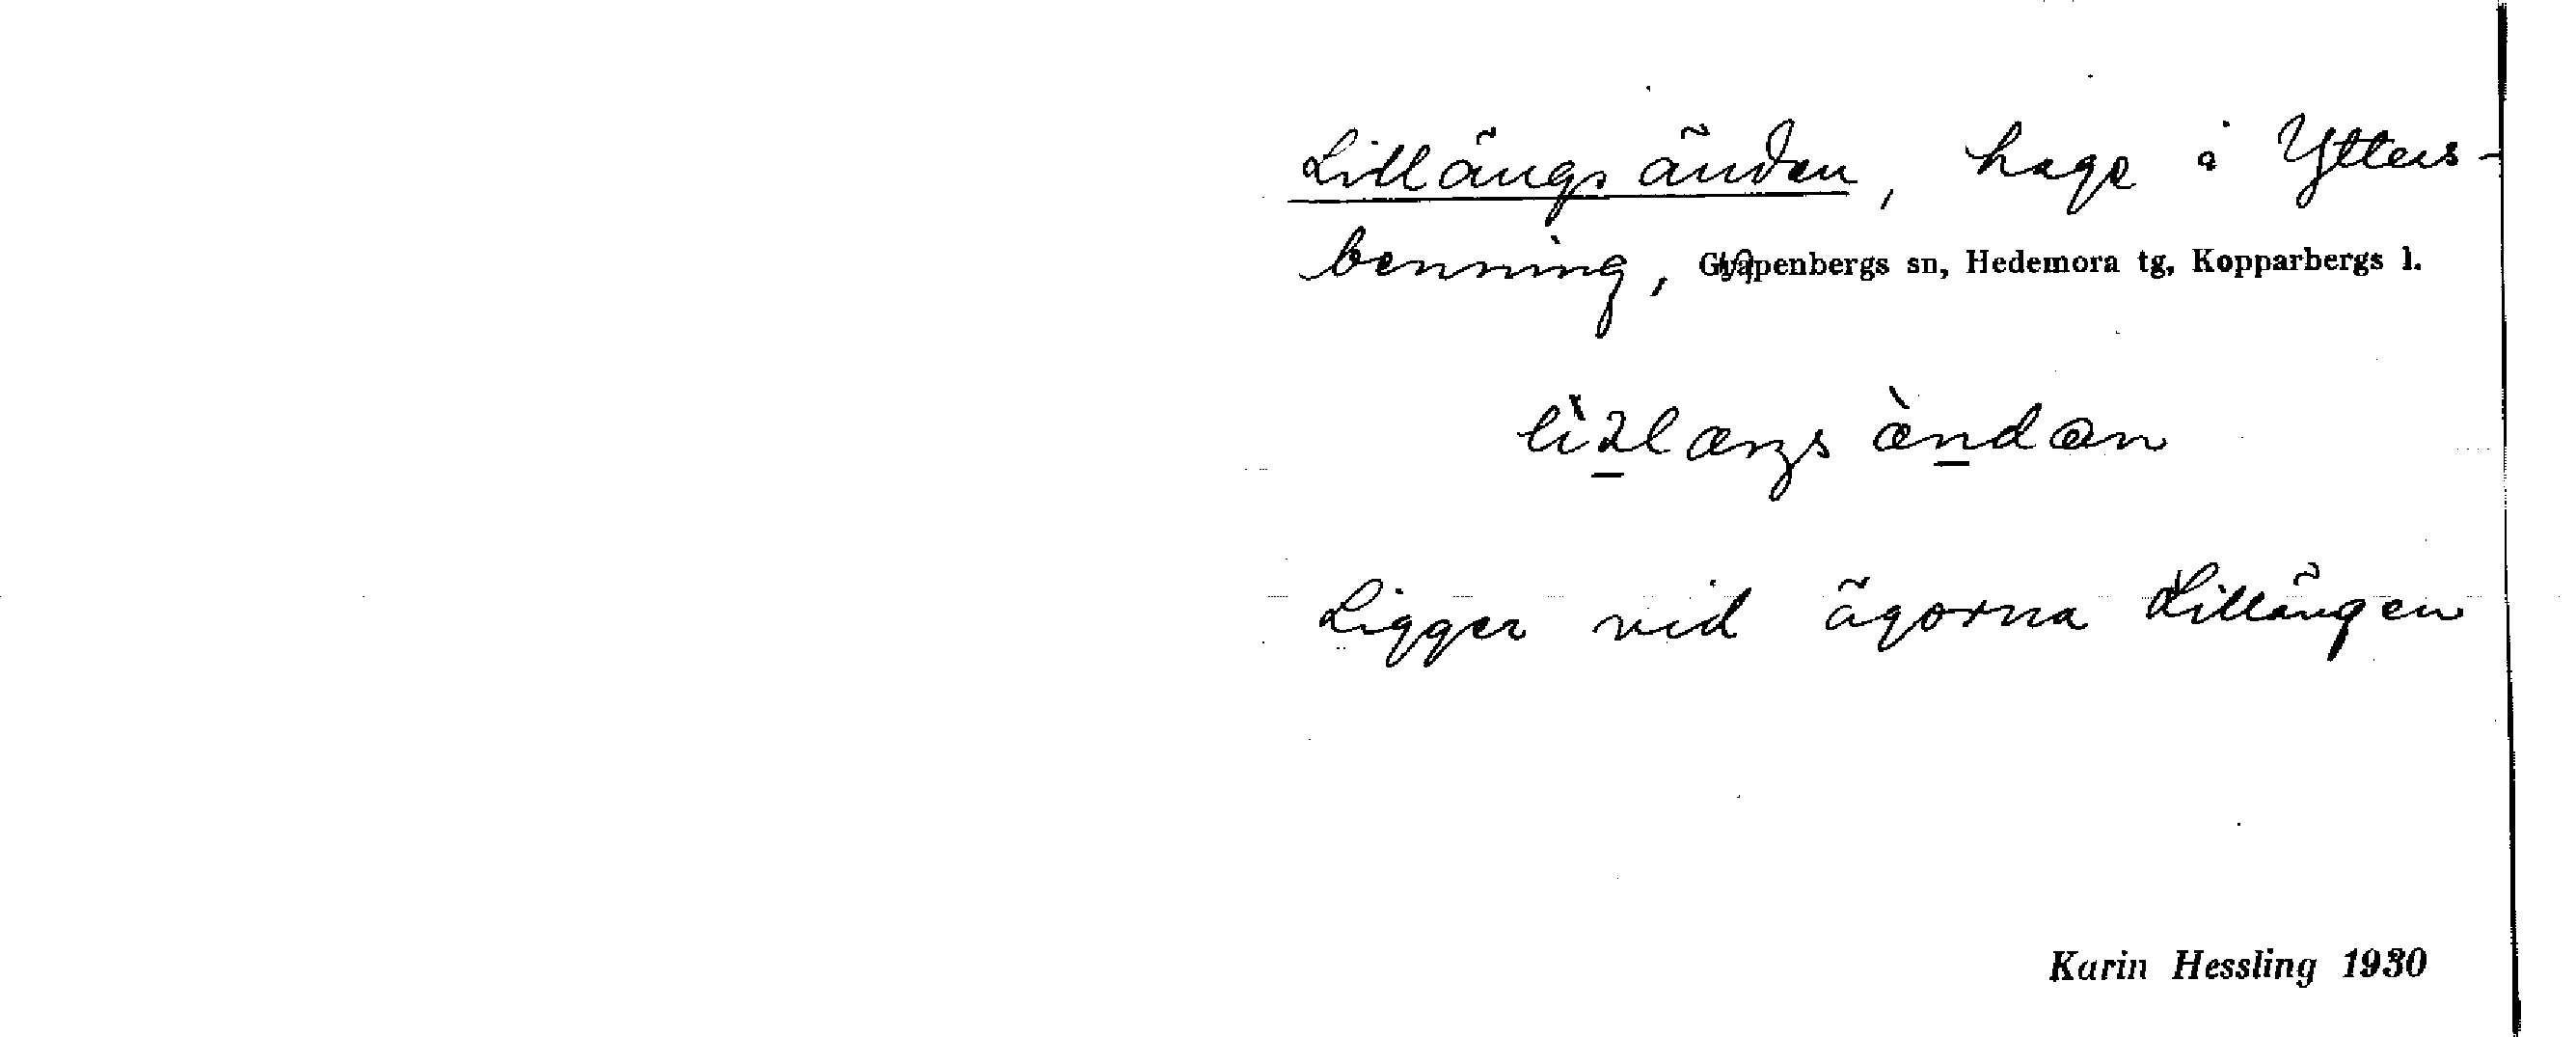 Lillängsänden, hage i Ytters-
benning, Garpenbergs sn, Hedemora tg, Kopparbergs l.
Ligger vid ägorna Lillängen
Karin Hessling 1930